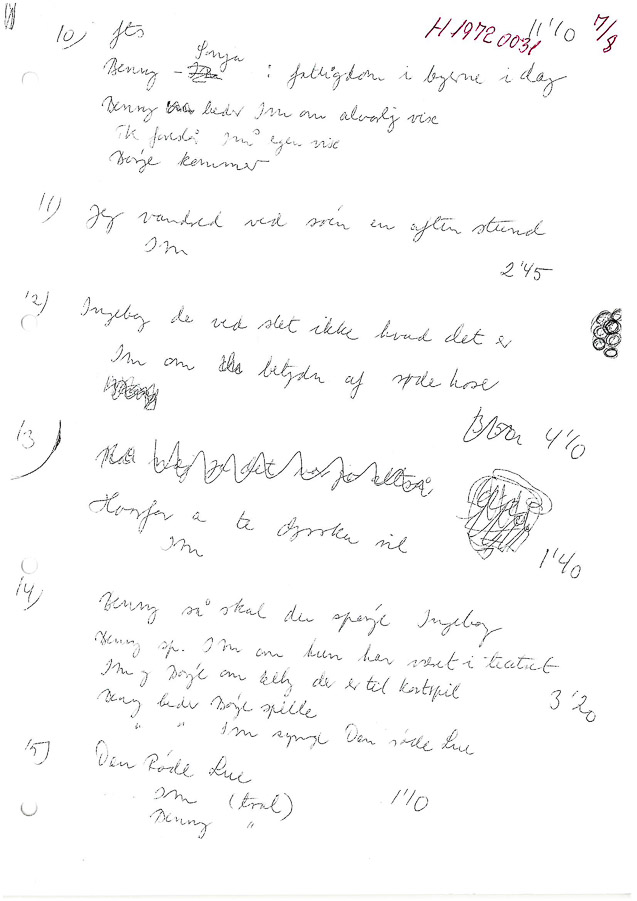 H 1972 0031 11'10 7/8
10) fts
Benny - Sonja : fattigdom i byerne i dag
Benny beder IM om alvorlig vise
IM's egen vise
Børje kommer
11) Jeg vandred ved søén en aften stund
IM
2'45
12) Ingeborg de ved slet ikke hvad det er
IM om betydn af røde hose
4'10
13)
Hvorfor a te dyrska vil
IM
1'40
14) Benny så skal du spørje Ingeborg
Benny sp. IM om hun har været i teatret
IM og Børje om der er til kortspil
3'20
Benny beder Børje spille
" " IM synge Den røde Lue
15) Den Røde Lue
IM (tral) 1'10
Benny "